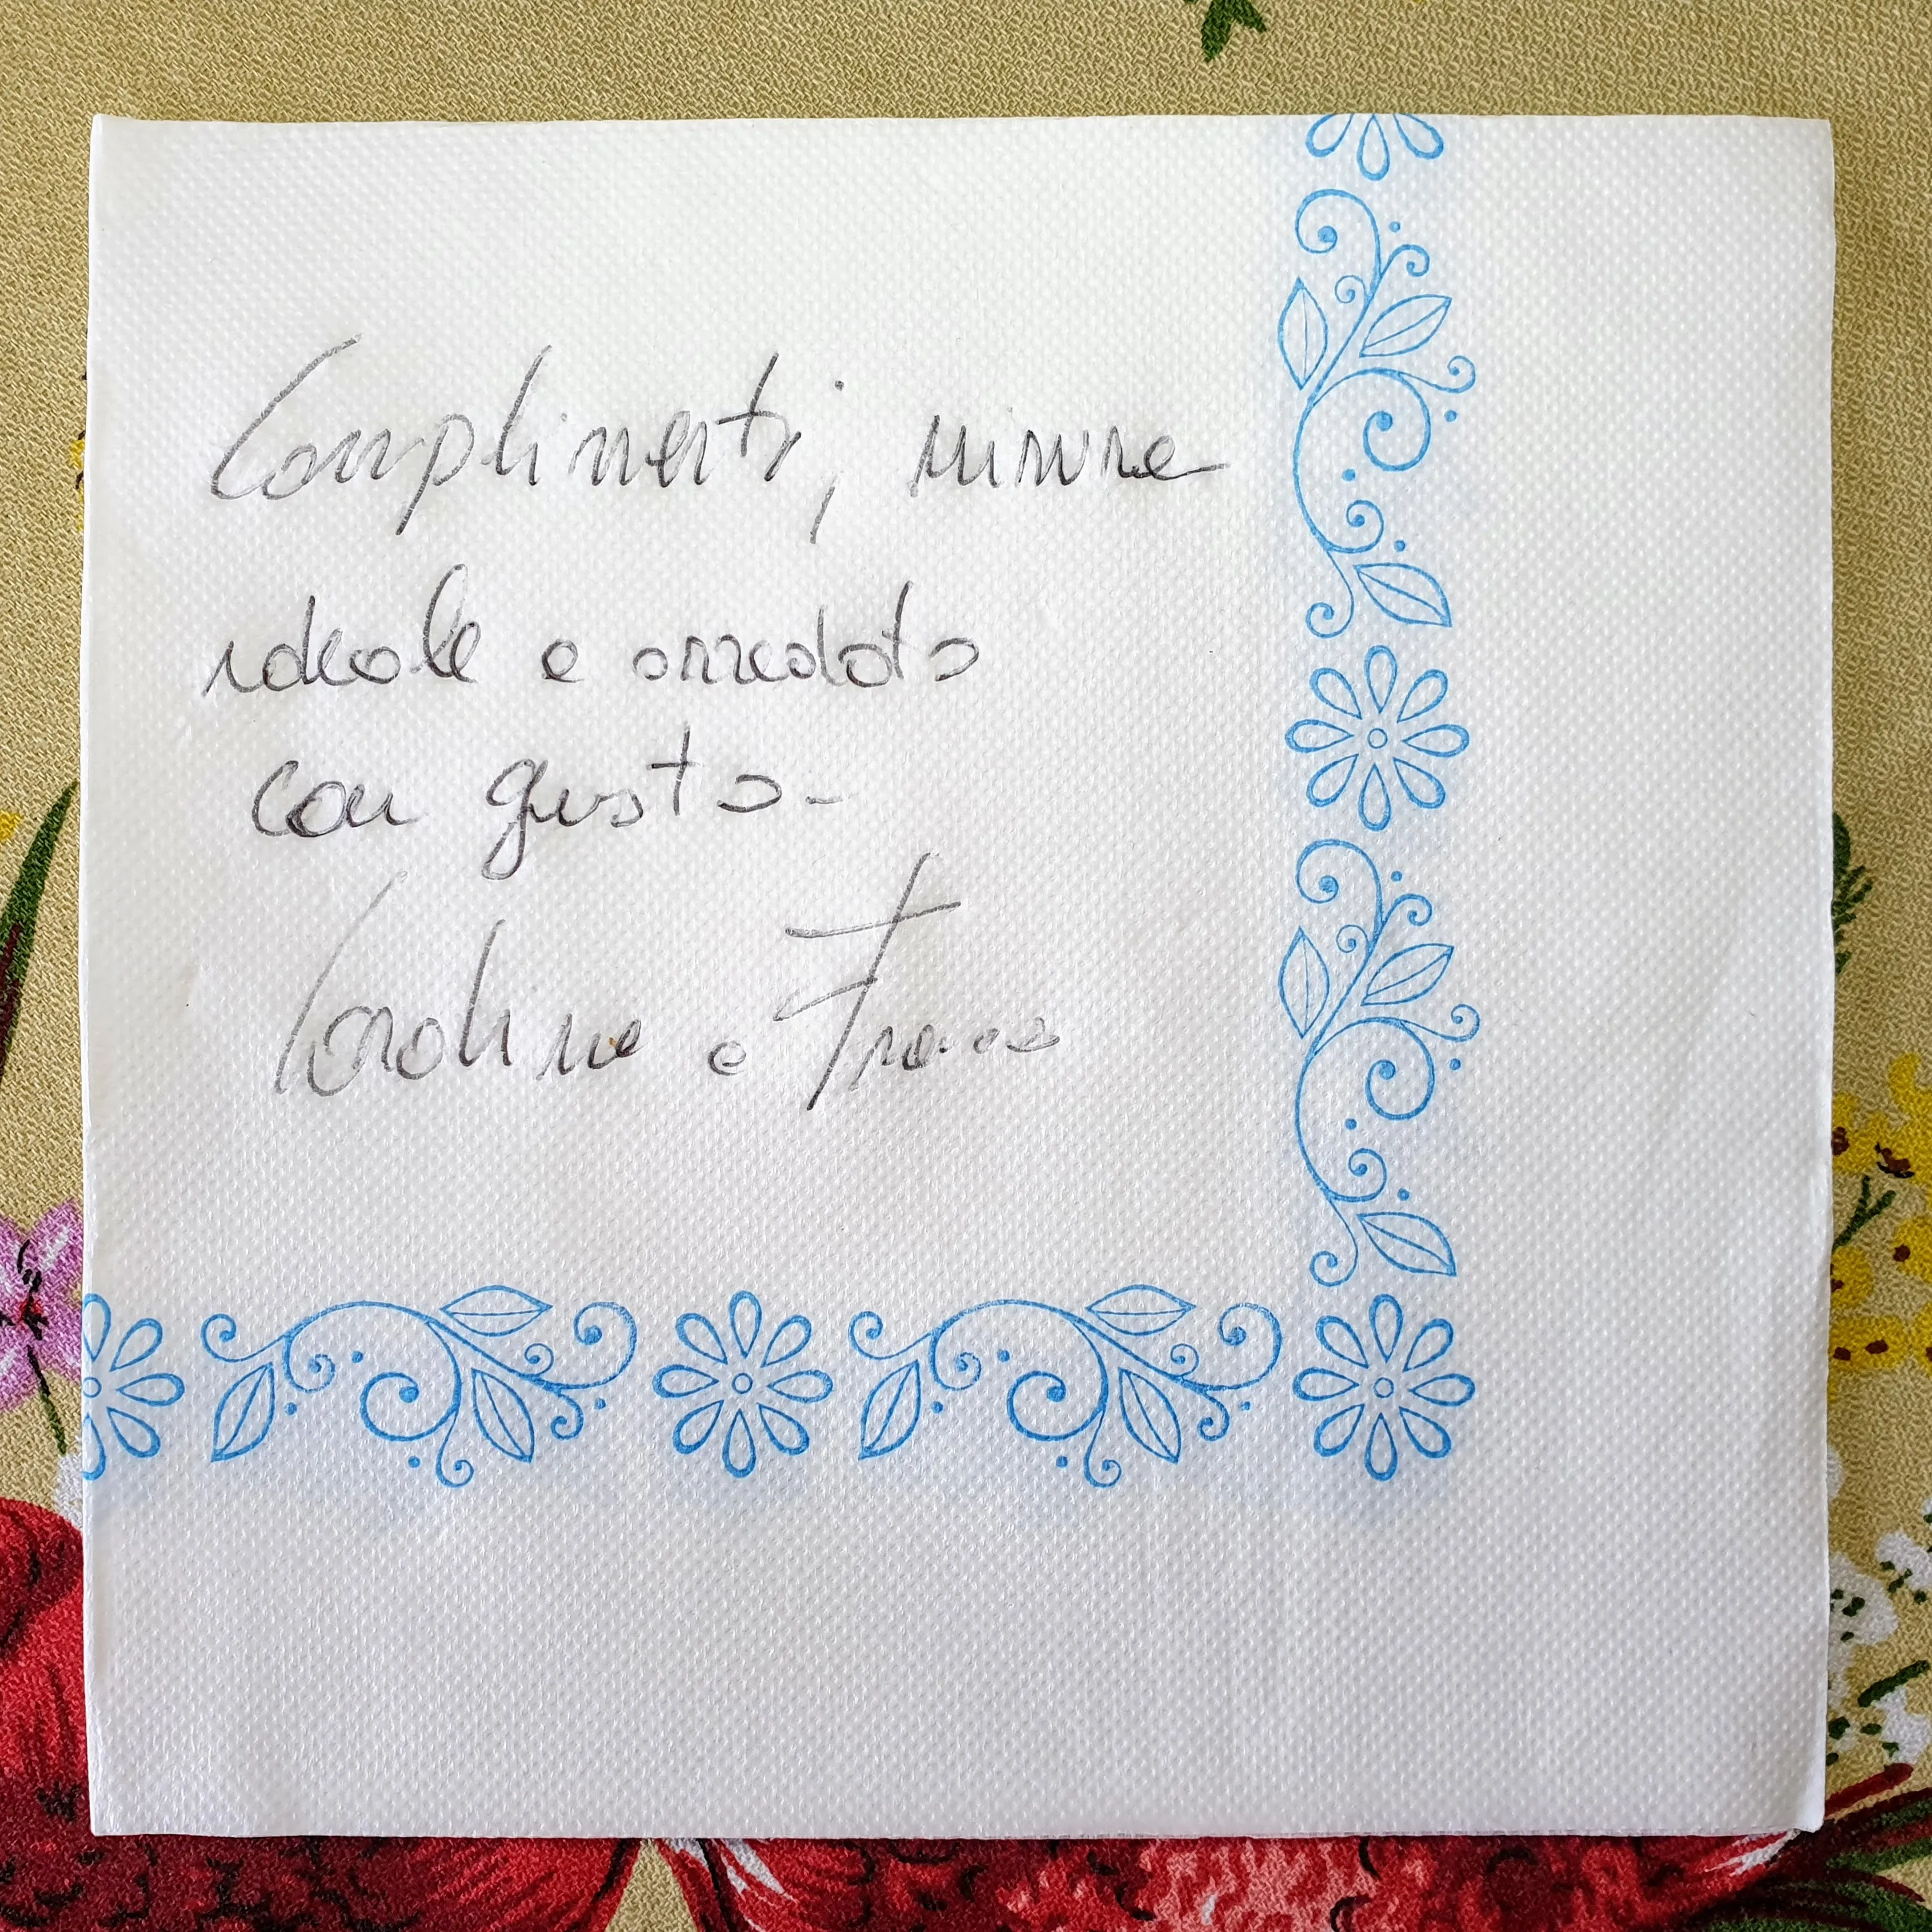 Complimenti,
ideale e arredato
con gusto-
Carolina e Franco